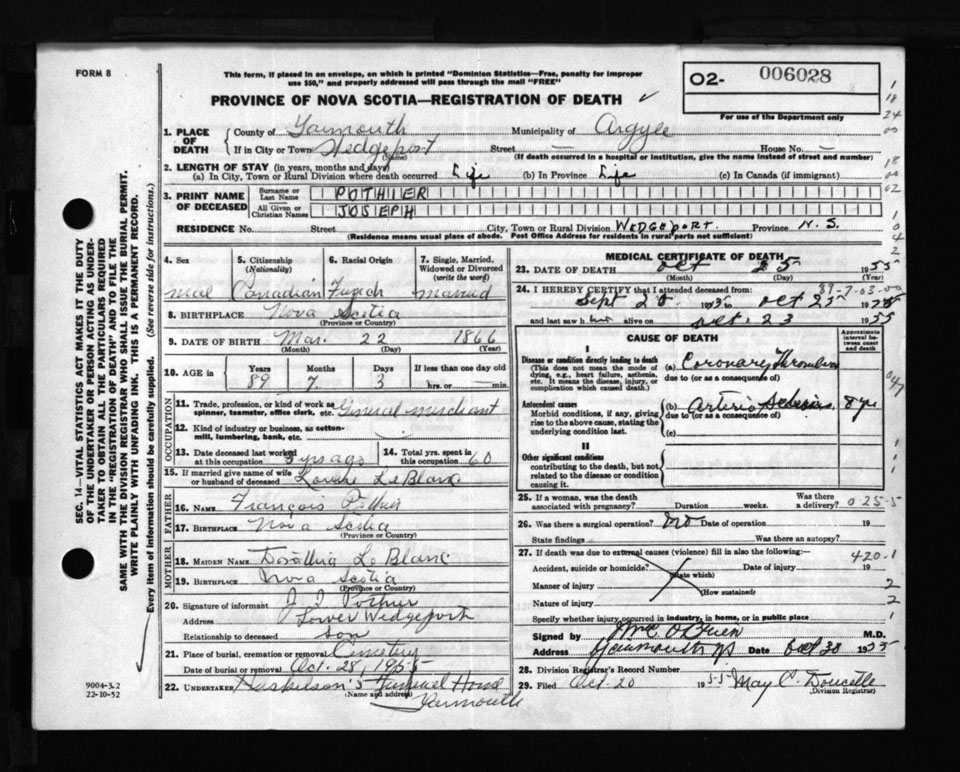 FORM 8
This form, if placed in an envelope, on which is printed "Dominion Statistics—Free, penalty for improper
use $50," and properly addressed will pass through the mail "FREE"
PROVINCE OF NOVA SCOTIA—REGISTRATION OF DEATH
O2- 006028
For use of the Department only
SEC. 14—VITAL STATISTICS ACT MAKES IT THE DUTY
OF THE UNDERTAKER OR PERSON ACTING AS UNDER-
TAKER TO OBTAIN ALL THE PARTICULARS REQUIRED
IN THE "REGISTRATION OF DEATH" AND TO FILE THE
SAME WITH THE DIVISION REGISTRAR WHO SHALL ISSUE THE BURIAL PERMIT.
WRITE PLAINLY WITH UNFADING INK. THIS IS A PERMANENT RECORD.
Every item of information should be carefully supplied. (See reverse side for instructions.)
1. PLACE OF DEATH
County of Yarmouth Municipality of Argyle
If in City or Town Wedgeport Street — House No. —
(Name) (If death occurred in a hospital or institution, give the name instead of street and number)
2. LENGTH OF STAY (in years, months and days)
(a) In City, Town or Rural Division where death occurred Life (b) In Province Life (c) In Canada (if immigrant)
3. PRINT NAME OF DECEASED
Surname or Last Name POTHIER
All Given or Christian Names JOSEPH
RESIDENCE No. Street City, Town or Rural Division WEDGEPORT. Province N.S.
(Residence means usual place of abode. Post Office Address for residents in rural parts not sufficient)
4. Sex 5. Citizenship (Nationality) 6. Racial Origin 7. Single, Married, Widowed or Divorced (write the word)
Canadian French Married
8. BIRTHPLACE Nova Scotia
(Province or Country)
9. DATE OF BIRTH Mar. 22 1866
(Month) (Day) (Year)
10. AGE in Years Months Days If less than one day old
89 7 3 hrs. or min.
OCCUPATION
11. Trade, profession, or kind of work as spinner, teamster, office clerk, etc. General merchant
12. Kind of industry or business, as cotton-mill, lumbering, bank, etc.
13. Date deceased last worked at this occupation 5 yrs ago 14. Total yrs. spent in this occupation 60
15. If married give name of wife or husband of deceased Louise LeBlanc
FATHER
16. Name François Pothier
17. Birthplace Nova Scotia
(Province or Country)
MOTHER
18. MAIDEN NAME LeBlanc
19. BIRTHPLACE Nova Scotia
(Province or Country)
20. Signature of informant Pothier
Address Lower Wedgeport
Relationship to deceased son
21. Place of burial, cremation or removal Cemetery
Date of burial or removal Oct. 28, 1955
22. UNDERTAKER Funeral Home
(Name and address) Yarmouth
9004-3.2
22-10-52
MEDICAL CERTIFICATE OF DEATH
23. DATE OF DEATH Oct 25 1955
(Month) (Day)
89-7-03-00
24. I HEREBY CERTIFY that I attended deceased from:
Sept 20 Oct 25 1955
and last saw h im alive on Oct. 23 1955
CAUSE OF DEATH
Approximate interval between onset and death
I
Disease or condition directly leading to death
(This does not mean the mode of dying, e.g., heart failure, asthenia, etc. It means the disease, injury, or complication which caused death.)
(a) Coronary Thrombosis
due to (or as a consequence of)
Antecedent causes
Morbid conditions, if any, giving rise to the above cause, stating the underlying condition last.
(b) Arterio Sclerosis
due to (or as a consequence of)
(c)
II
Other significant conditions
contributing to the death, but not related to the disease or condition causing it.
25. If a woman, was the death associated with pregnancy? Duration weeks. Was there a delivery?
0-25-5
26. Was there a surgical operation? No Date of operation 19
State findings Was there an autopsy?
27. If death was due to external causes (violence) fill in also the following:—
420.1
Accident, suicide or homicide? (State which) Date of injury 19
Manner of injury (How sustained) 2
Nature of injury 2
Specify whether injury occurred in industry, in home, or in public place 1
Signed by O'Brien M.D.
Address Yarmouth NS Date Oct 1955
28. Division Registrar's Record Number
29. Filed Oct. 20 1955 May C. Doucette
(Division Registrar)